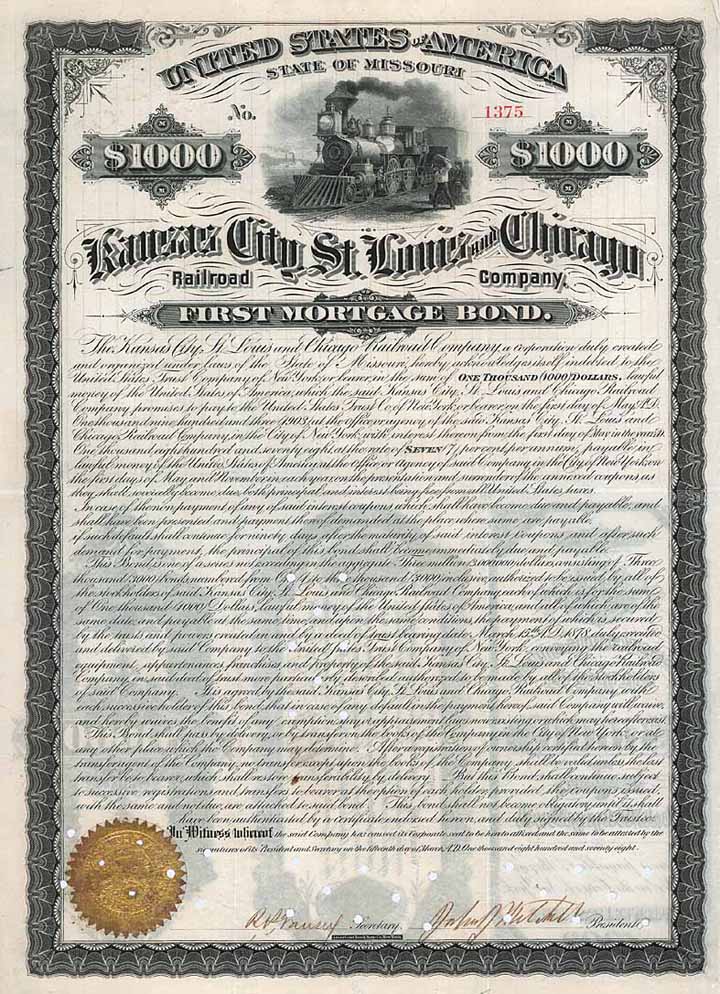 UNITED STATES OF AMERICA
STATE OF MISSOURI
No. 1375
$1000 $1000
Kansas City St. Louis and Chicago
Railroad Company.
FIRST MORTGAGE BOND.
The Kansas City, St. Louis and Chicago Railroad Company, a corporation duly created
and organized under laws of the State of Missouri, hereby acknowledges itself indebted to the
United States Trust Company of New York, or bearer, in the sum of ONE THOUSAND (1000) DOLLARS, lawful
money of the United States of America, which the said Kansas City, St. Louis and Chicago Railroad
Company promises to pay to the United States Trust Co. of New York, or bearer, on the first day of May A.D.
One thousand nine hundred and three (1903) at the office or agency of the said Kansas City, St. Louis and
Chicago Railroad Company, in the City of New York, with interest thereon from the first day of May in the year A.D.
One thousand eight hundred and seventy eight, at the rate of SEVEN (7) per cent per annum, payable in
lawful money of the United States of America, at the office or agency of said Company in the City of New York, on
the first days of May and November in each year, on the presentation and surrender of the annexed coupons, as
they shall severally become due, both principal and interest being free from all United States taxes.
In case of the non payment of any of said interest coupons which shall have become due and payable, and
shall have been presented and payment thereof demanded at the place where same are payable,
if such default shall continue for ninety days after the maturity of said interest coupons and after such
demand for payment, the principal of this bond shall become immediately due and payable.
This Bond is one of a series not exceeding in the aggregate Three million 3,000,000 dollars, consisting of Three
thousand 3000 bonds numbered from One 1 to three thousand 3000 inclusive, authorized to be issued by all of
the stockholders of said Kansas City, St. Louis and Chicago Railroad Company, each of which is for the sum
of One thousand 1000 Dollars, lawful money of the United States of America, and all of which are of the
same date and payable at the same time, and upon the same conditions, the payment of which is secured
by the trusts and powers created in and by a deed of trust bearing date March 15th A.D. 1878, duly executed
and delivered by said Company to the United States Trust Company of New York, conveying the railroad
equipment, appurtenances, franchises and property of the said Kansas City, St. Louis and Chicago Railroad
Company, in said deed of trust more particularly described, authorized to be made by all of the Stockholders
of said Company. It is agreed by the said Kansas City, St. Louis and Chicago Railroad Company, with
each successive holder of this Bond, that in case of any default in the payment hereof said Company will waive,
and hereby waives the benefit of any exemption, stay or appraisement law now existing or which may hereafter exist.
This Bond shall pass by delivery, or by transfer on the books of the Company in the City of New York or at
any other place which the Company may determine. After a registration of ownership certified hereon by the
transfer agent of the Company, no transfer except upon the books of the Company, shall be valid unless the last
transfer be to bearer, which shall restore transferability by delivery. But this Bond shall continue subject
to successive registrations and transfers to bearer at the option of each holder, provided the coupons issued
with the same and not due, are attached to said bond. This bond shall not become obligatory until it shall
have been authenticated by a certificate endorsed hereon, and duly signed by the Trustee.
In Witness whereof the said Company has caused its Corporate seal to be hereto affixed and the same to be attested by the
signatures of its President and Secretary on the fifteenth day of March, A.D. One thousand eight hundred and seventy eight.
Secretary. John J. Mitchell President.